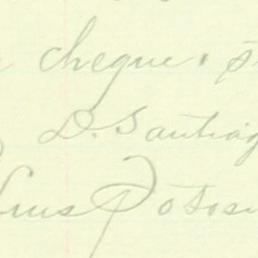 cheque.
D. Santiag
Luis Potosi